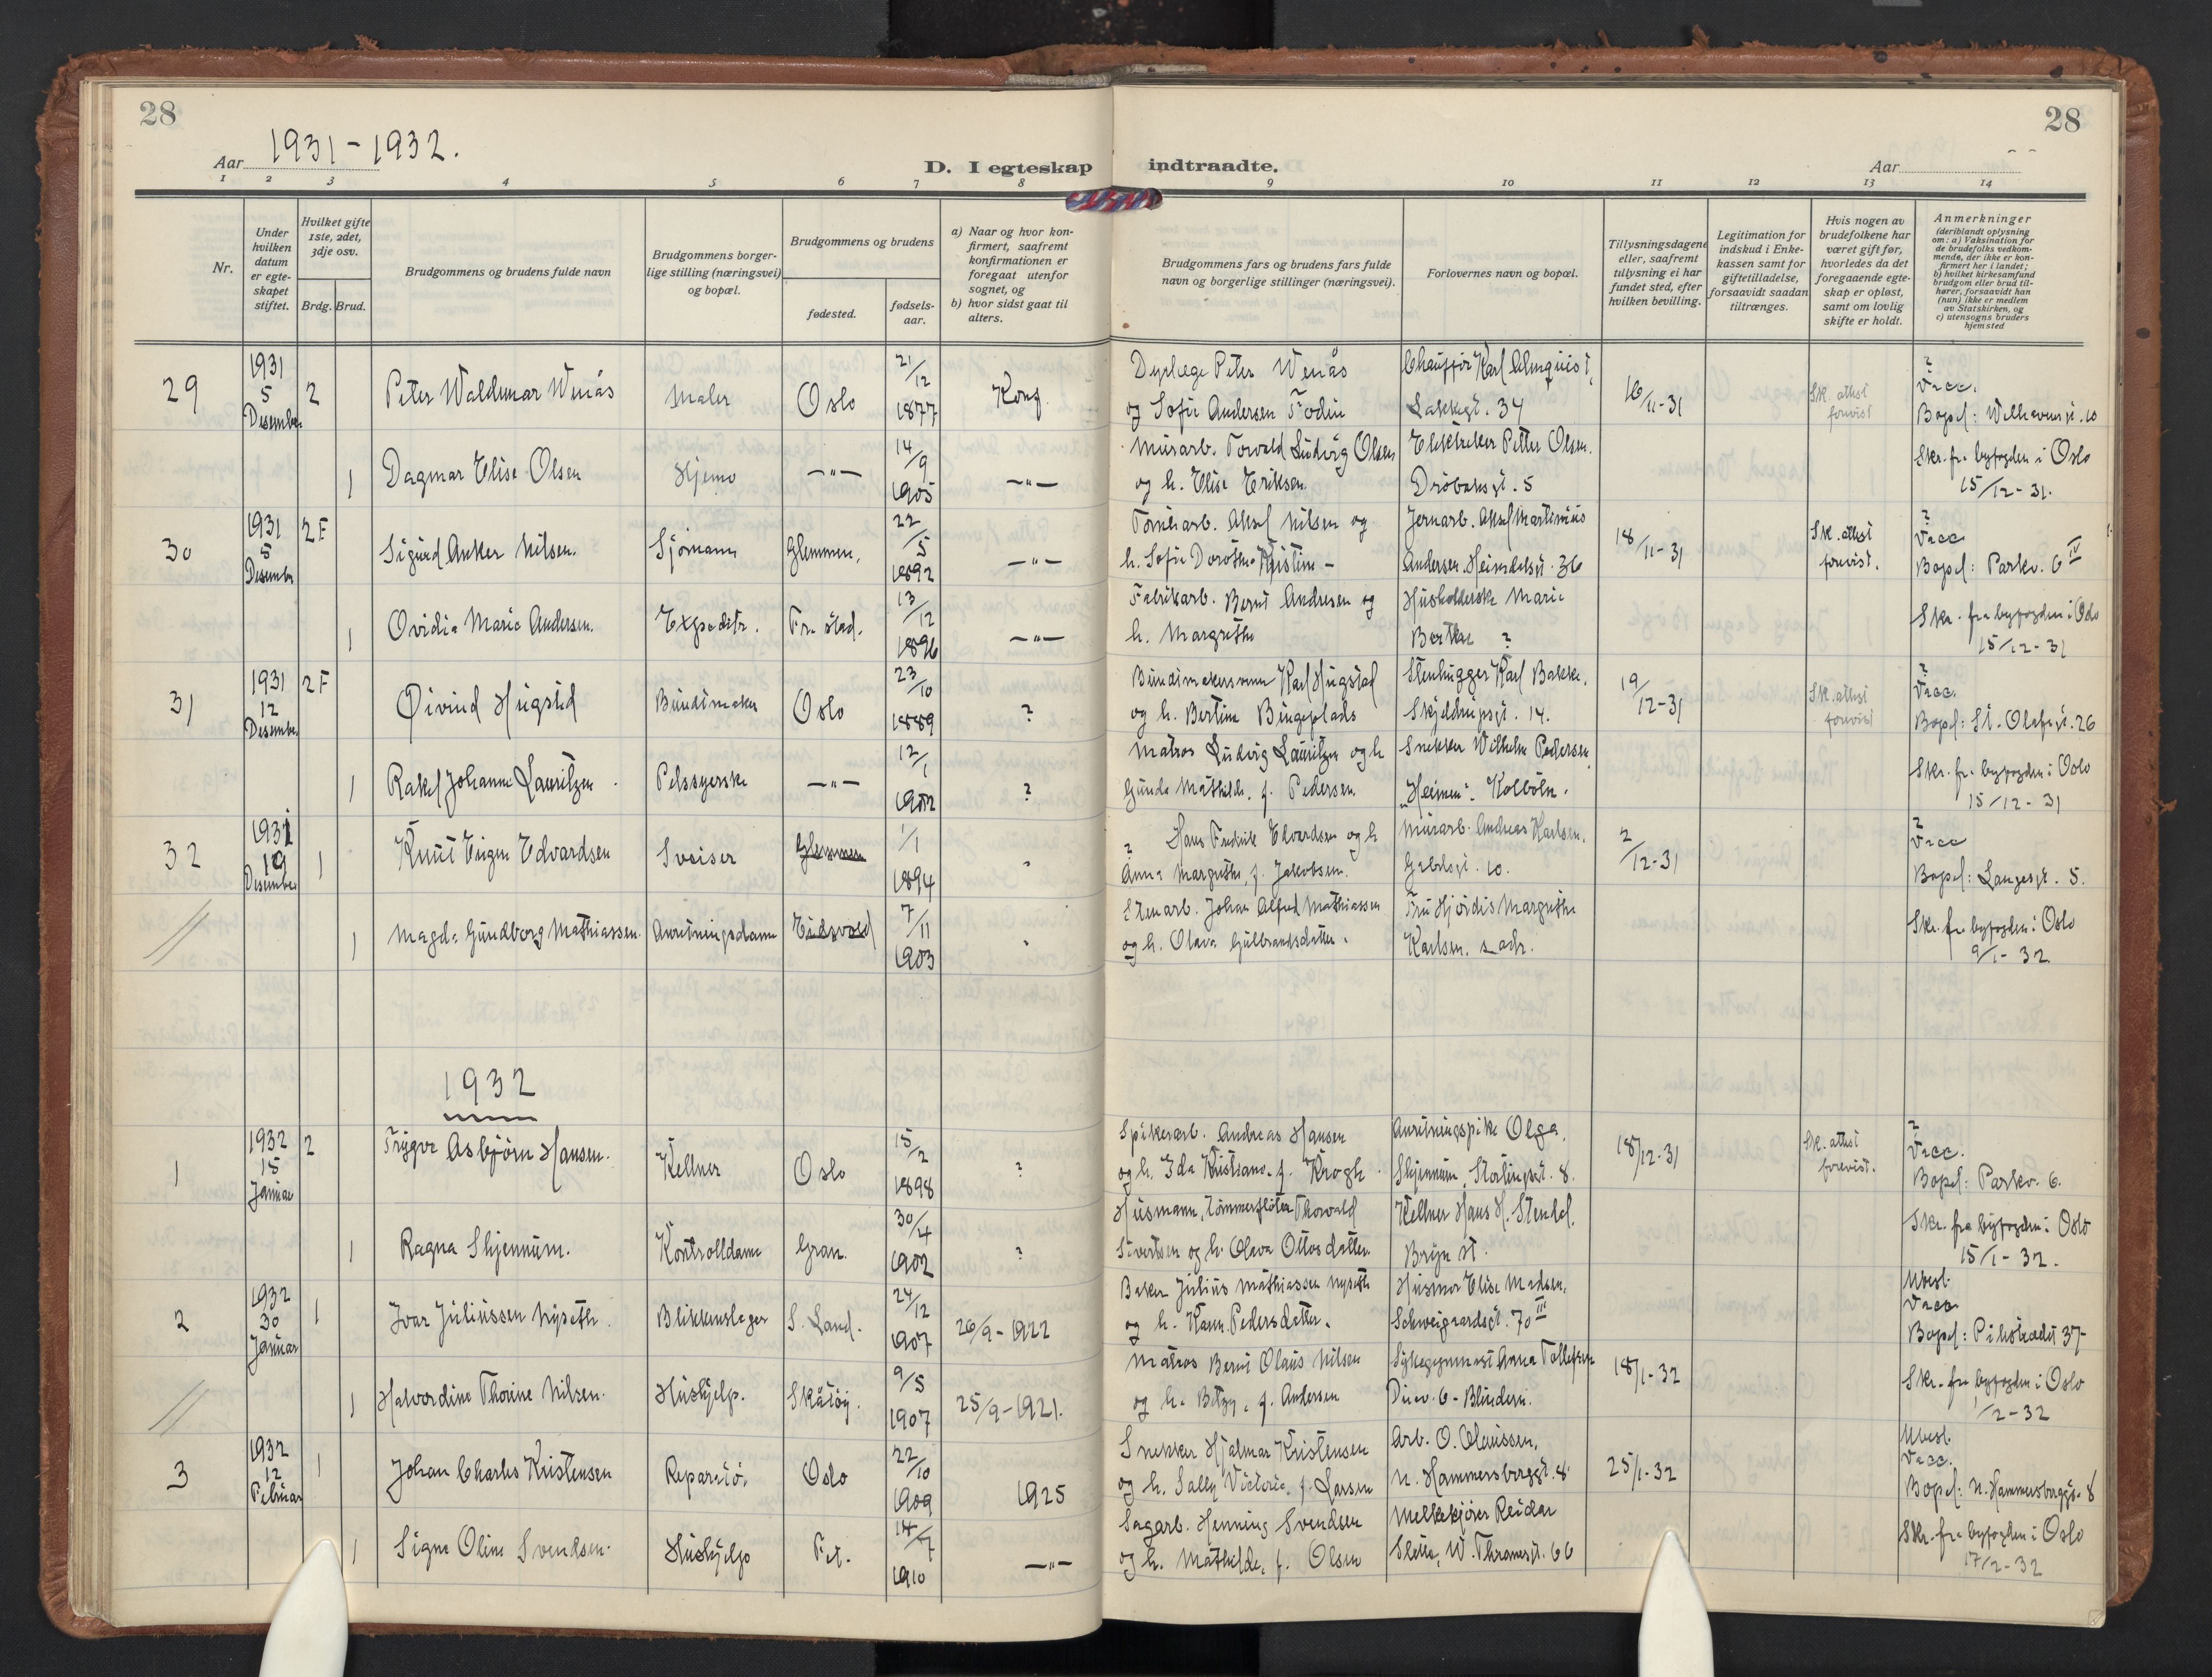 28
28
Aar 1931-1932.
D. I egteskap indtraadte.
Aar
1 2 3 4 5 6 7 8 9 10 11 12 13 14
Nr.
Under hvilken datum er egteskapet stiftet.
Hvilket gifte 1ste, 2det, 3dje osv.
Brdg. Brud.
Brudgommens og brudens fulde navn
Brudgommens borgerlige stilling (næringsvei) og bopæl.
Brudgommens og brudens
fødested.
fødselsaar.
a) Naar og hvor konfirmert, saafremt konfirmationen er foregaat utenfor sognet, og
b) hvor sidst gaat til alters.
Brudgommens fars og brudens fars fulde navn og borgerlige stillinger (næringsvei).
Forlovernes navn og bopæl.
Tillysningsdagene eller, saafremt tillysning ei har fundet sted, efter hvilken bevilling.
Legitimation for indskud i Enkekassen samt for giftetilladelse, forsaavidt saadan tiltrænges.
Hvis nogen av brudefolkene har været gift før, hvorledes da det foregaaende egteskap er opløst, samt om lovlig skifte er holdt.
Anmerkninger (deriblandt oplysning om: a) Vaksination for de brudefolks vedkommende, der ikke er konfirmert her i landet; b) hvilket kirkesamfund brudgom eller brud tilhører, forsaavidt han (hun) ikke er medlem av Statskirken, og c) utensogns bruders hjemsted
29 1931 5 Desember 2 Peter Waldemar Wenås Maler Oslo 21/12 1877 Konf. Dyrlæge Peter Wenås og Sofie Andersen Chauffør Karl Almquist, Lakkegt. 34 16/11-31 Sk. attest forevist ? Vacc. Bopel:
1 Dagmar Elise Olsen Hjeme —"— 14/9 1905 —"— Murarb. Torvald Ludvig Olsen og h. Elise Eriksen Petter Olsen. Drøbaksgt. 5 Skr. fra byfogden i Oslo 15/12-31.
30 1931 5 Desember 2F Sigurd Anker Nilsen. Sjømann Glemmen, 22/5 1892 —"— Aksel Nilsen og h. Sofie Jernarb. Aksel Martinius Andersen. Heimdalsgt. 36 18/11-31 Sk. attest forevist. ? Vacc Bopel: Parkv. 6 IV
1 Ovidia Marie Andersen. Expeditr. Fr.stad. 13/12 1896 —"— Fabrikarb. Bernt Andresen og h. Margrethe Husholderske Marie Berthe ? Skr. fra byfogden i Oslo 15/12-31
31 1931 12 Desember 2F Øivind Hugsted Buntmaker Oslo 23/10 1889 ? Karl Hugstad og h. Bertine Bingeplads Stenhugger Karl Bakke. Skjeldrupsgt. 14. 19/12-31 Sk. attest forevist ? Vacc. Bopel: St. Olafsgt. 26
1 Rakel Johanne Lauritzen Pelssyerske —"— 12/1 1902 ? Matros Ludvig Lauritzen og h Gunda Mathilde, f. Pedersen. Snekker Wilhelm Pedersen "Heimen". Kolbotn. Skr. fra byfogden i Oslo 15/12-31
32 1931 19 Desember 1 Knut Eugen Edvardsen Sveiser Glemmen 1/1 1894 " ? Hans Fredrik Edvardsen og h Anna Margrethe, f. Jakobsen. Murarb. Andreas Karlsen. Gabelsgt. 10. 2/12-31 ? Vacc Bopel: Langesgt. 5.
1 Magda Gundborg Mathiassen. Anretningsdame Eidsvold 7/11 1903 " Stenarb. Johan Alfred Mathiassen og h. Olava Gulbrandsdatter. Fru Hjørdis Margrethe Karlsen. s. adr. Skr. fra byfogden i Oslo 9/1-32
1932
1 1932 15 Januar 2 Trygve Asbjørn Hansen. Kellner Oslo 15/2 1898 ? Spikerarb. Andreas Hansen og h. Ida Kristiane f. Krogh. Anretningspike Olga Skjennum, Stortingsgt. 8. 18/12-31 Sk. attest forevist. ? Vacc. Bopel: Parkv. 6.
1 Ragna Skjennum. Kontrolldame Gran. 30/4 1902 ? Husmann, tømmerfløter Thorvald Sivertsen og h. Olava Ottosdatter. Kellner Hans H. Stendal. Bryn st. Skr. fra byfogden i Oslo 15/1-32.
2 1932 30 Januar 1 Ivar Juliussen Nyseth. Blikkenslager S. Land. 24/12 1907 26/9-1922 Baker Julius Mathiassen Nyseth og h. Karen Pedersdatter. Husmor Elise Madsen. Schweigaardsgt. 70 III Ubesl. Vacc Bopel: Pilestredet 37-
1 Halvordine Thorine Nilsen. Hushjelp. Skåtøy. 9/5 1907 25/9-1921. Matros Bernt Olaus Nilsen og h. Betzy, f. Andersen Sykegymnast Anna Tollefsen Duev. 6 - Blindern. 18/1-32 Skr. fra byfogden i Oslo 1/2-32
3 1932 12 Februar 1 Johan Charles Kristensen Reparatø. Oslo 22/10 1909 1925 Snekker Hjalmar Kristensen og h. Sally Victoria, f. Larsen Arb. O. Olaussen, N. Hammersborggt. 8 25/1-32 Ubesl. Vacc. Bopel: N. Hammersborggt. 8
1 Signe Oline Svendsen. Hushjelp Fet. 14/7 1910 —"— Sagarb. Henning Svendsen og h. Mathilde, f. Olsen Melkekjører Reidar W. Thranesgt. 66 Skr. fra byfogden i Oslo 17/2-32